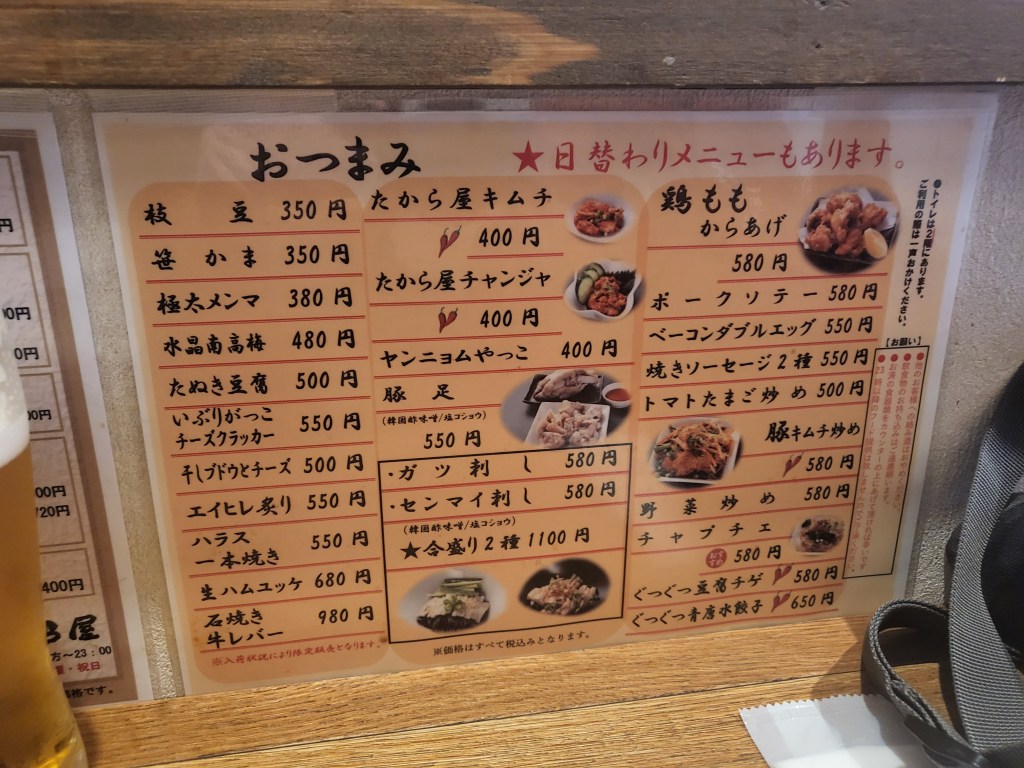 おつまみ
★日替わりメニューもあります。
枝豆 350円
笹かま 350円
極太メンマ 380円
水晶南高梅 480円
たぬき豆腐 500円
いぶりがっこ
チーズクラッカー 550円
干しブドウとチーズ 500円
エイヒレ炙り 550円
ハラス
一本焼き 550円
生ハムユッケ 680円
石焼き
牛レバー 980円
※入荷状況により限定販売となります。
たから屋キムチ
400円
たから屋チャンジャ
400円
ヤンニョムやっこ 400円
豚足
(韓国酢味噌/塩コショウ)
550円
・ガツ刺し 580円
・センマイ刺し 580円
(韓国酢味噌/塩コショウ)
★合盛り2種1100円
※価格はすべて税込みとなります。
鶏もも
からあげ
580円
ポークソテー 580円
ベーコンダブルエッグ 550円
焼きソーセージ2種 550円
トマトたまご炒め 500円
豚キムチ炒め
580円
野菜炒め 580円
チャプチェ
580円
ぐつぐつ豆腐チゲ 580円
ぐつぐつ青唐水餃子 650円
●トイレは2階にあります。
ご利用の際は一声おかけください。
【お願い】
屋
～23：00
・祝日
価格です。
円
00円
0円
00円
00円
/20円
400円